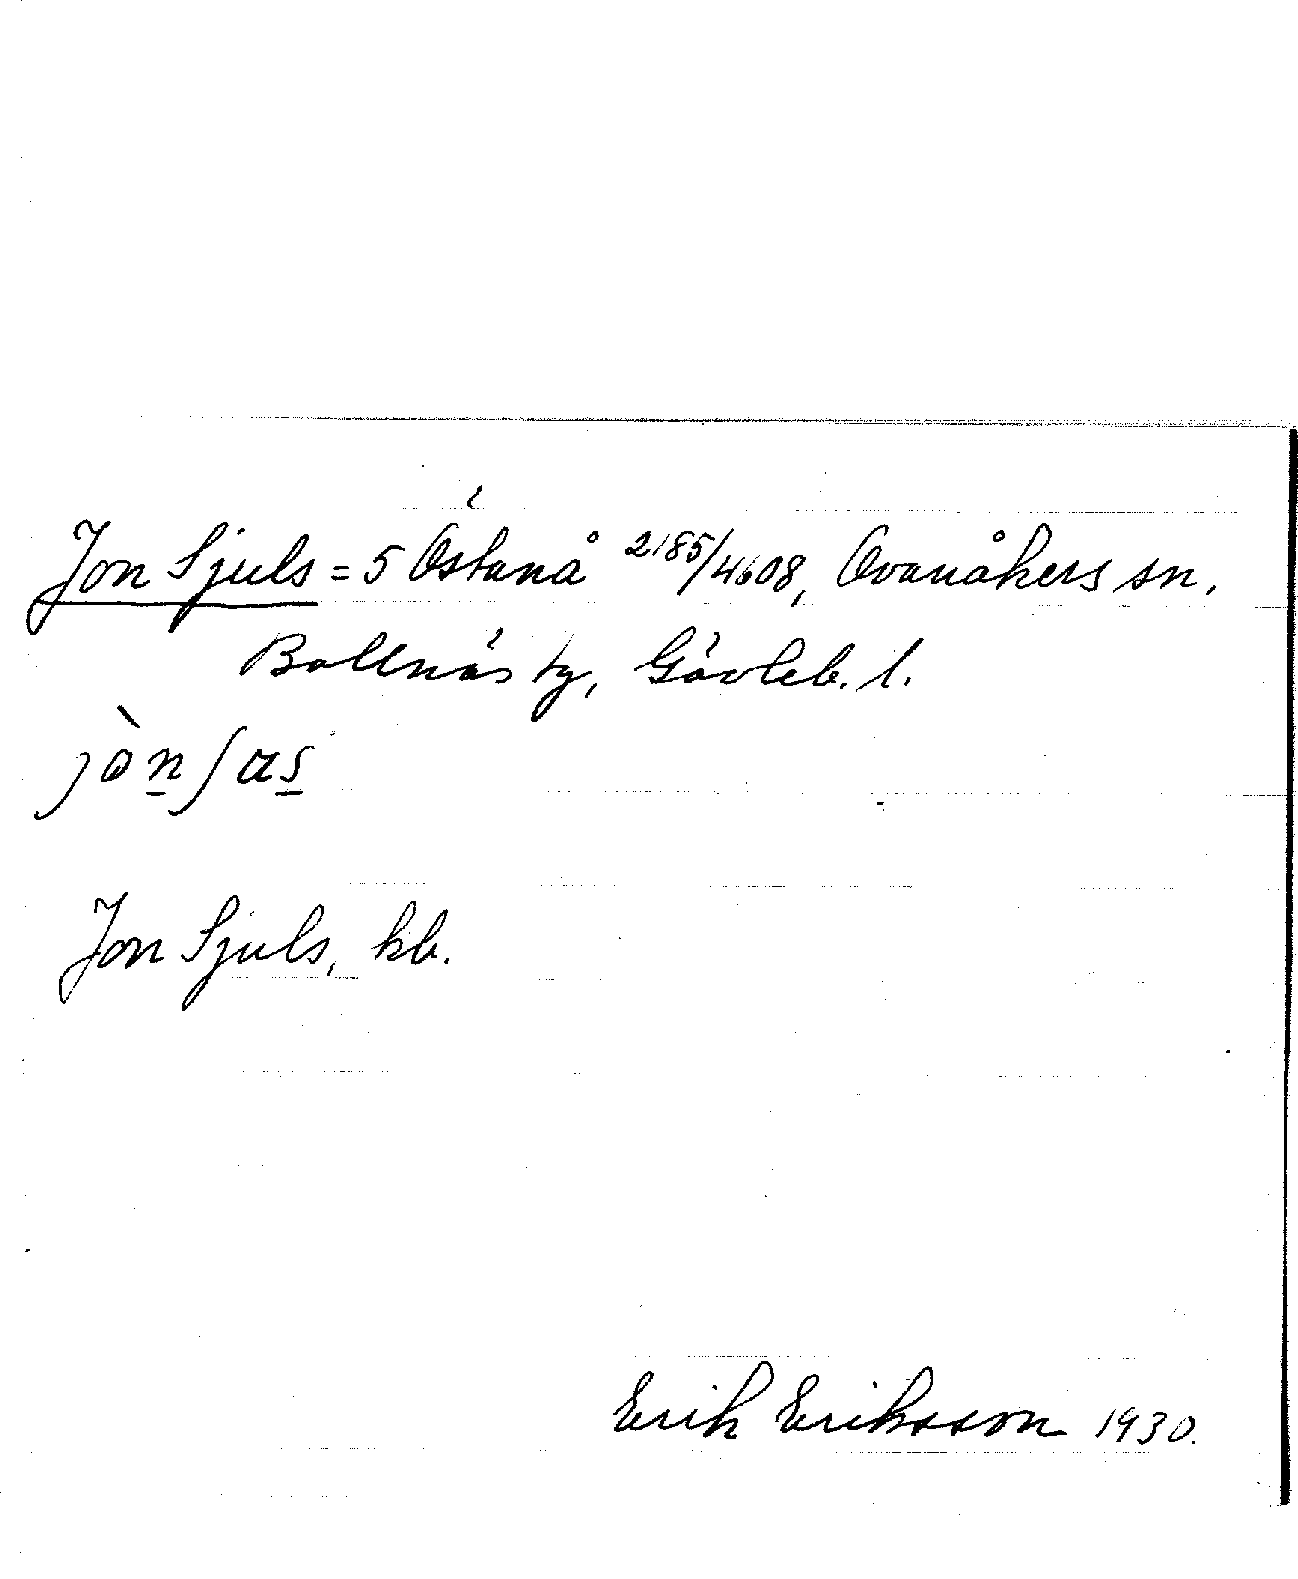 Jon Sjuls = 5 Östanå 2185/4608, Ovanåkers sn.
Bollnäs tg, Gävleb. l.
jònʃɑs
Jon Sjuls, kb.
Erik Eriksson 1930.